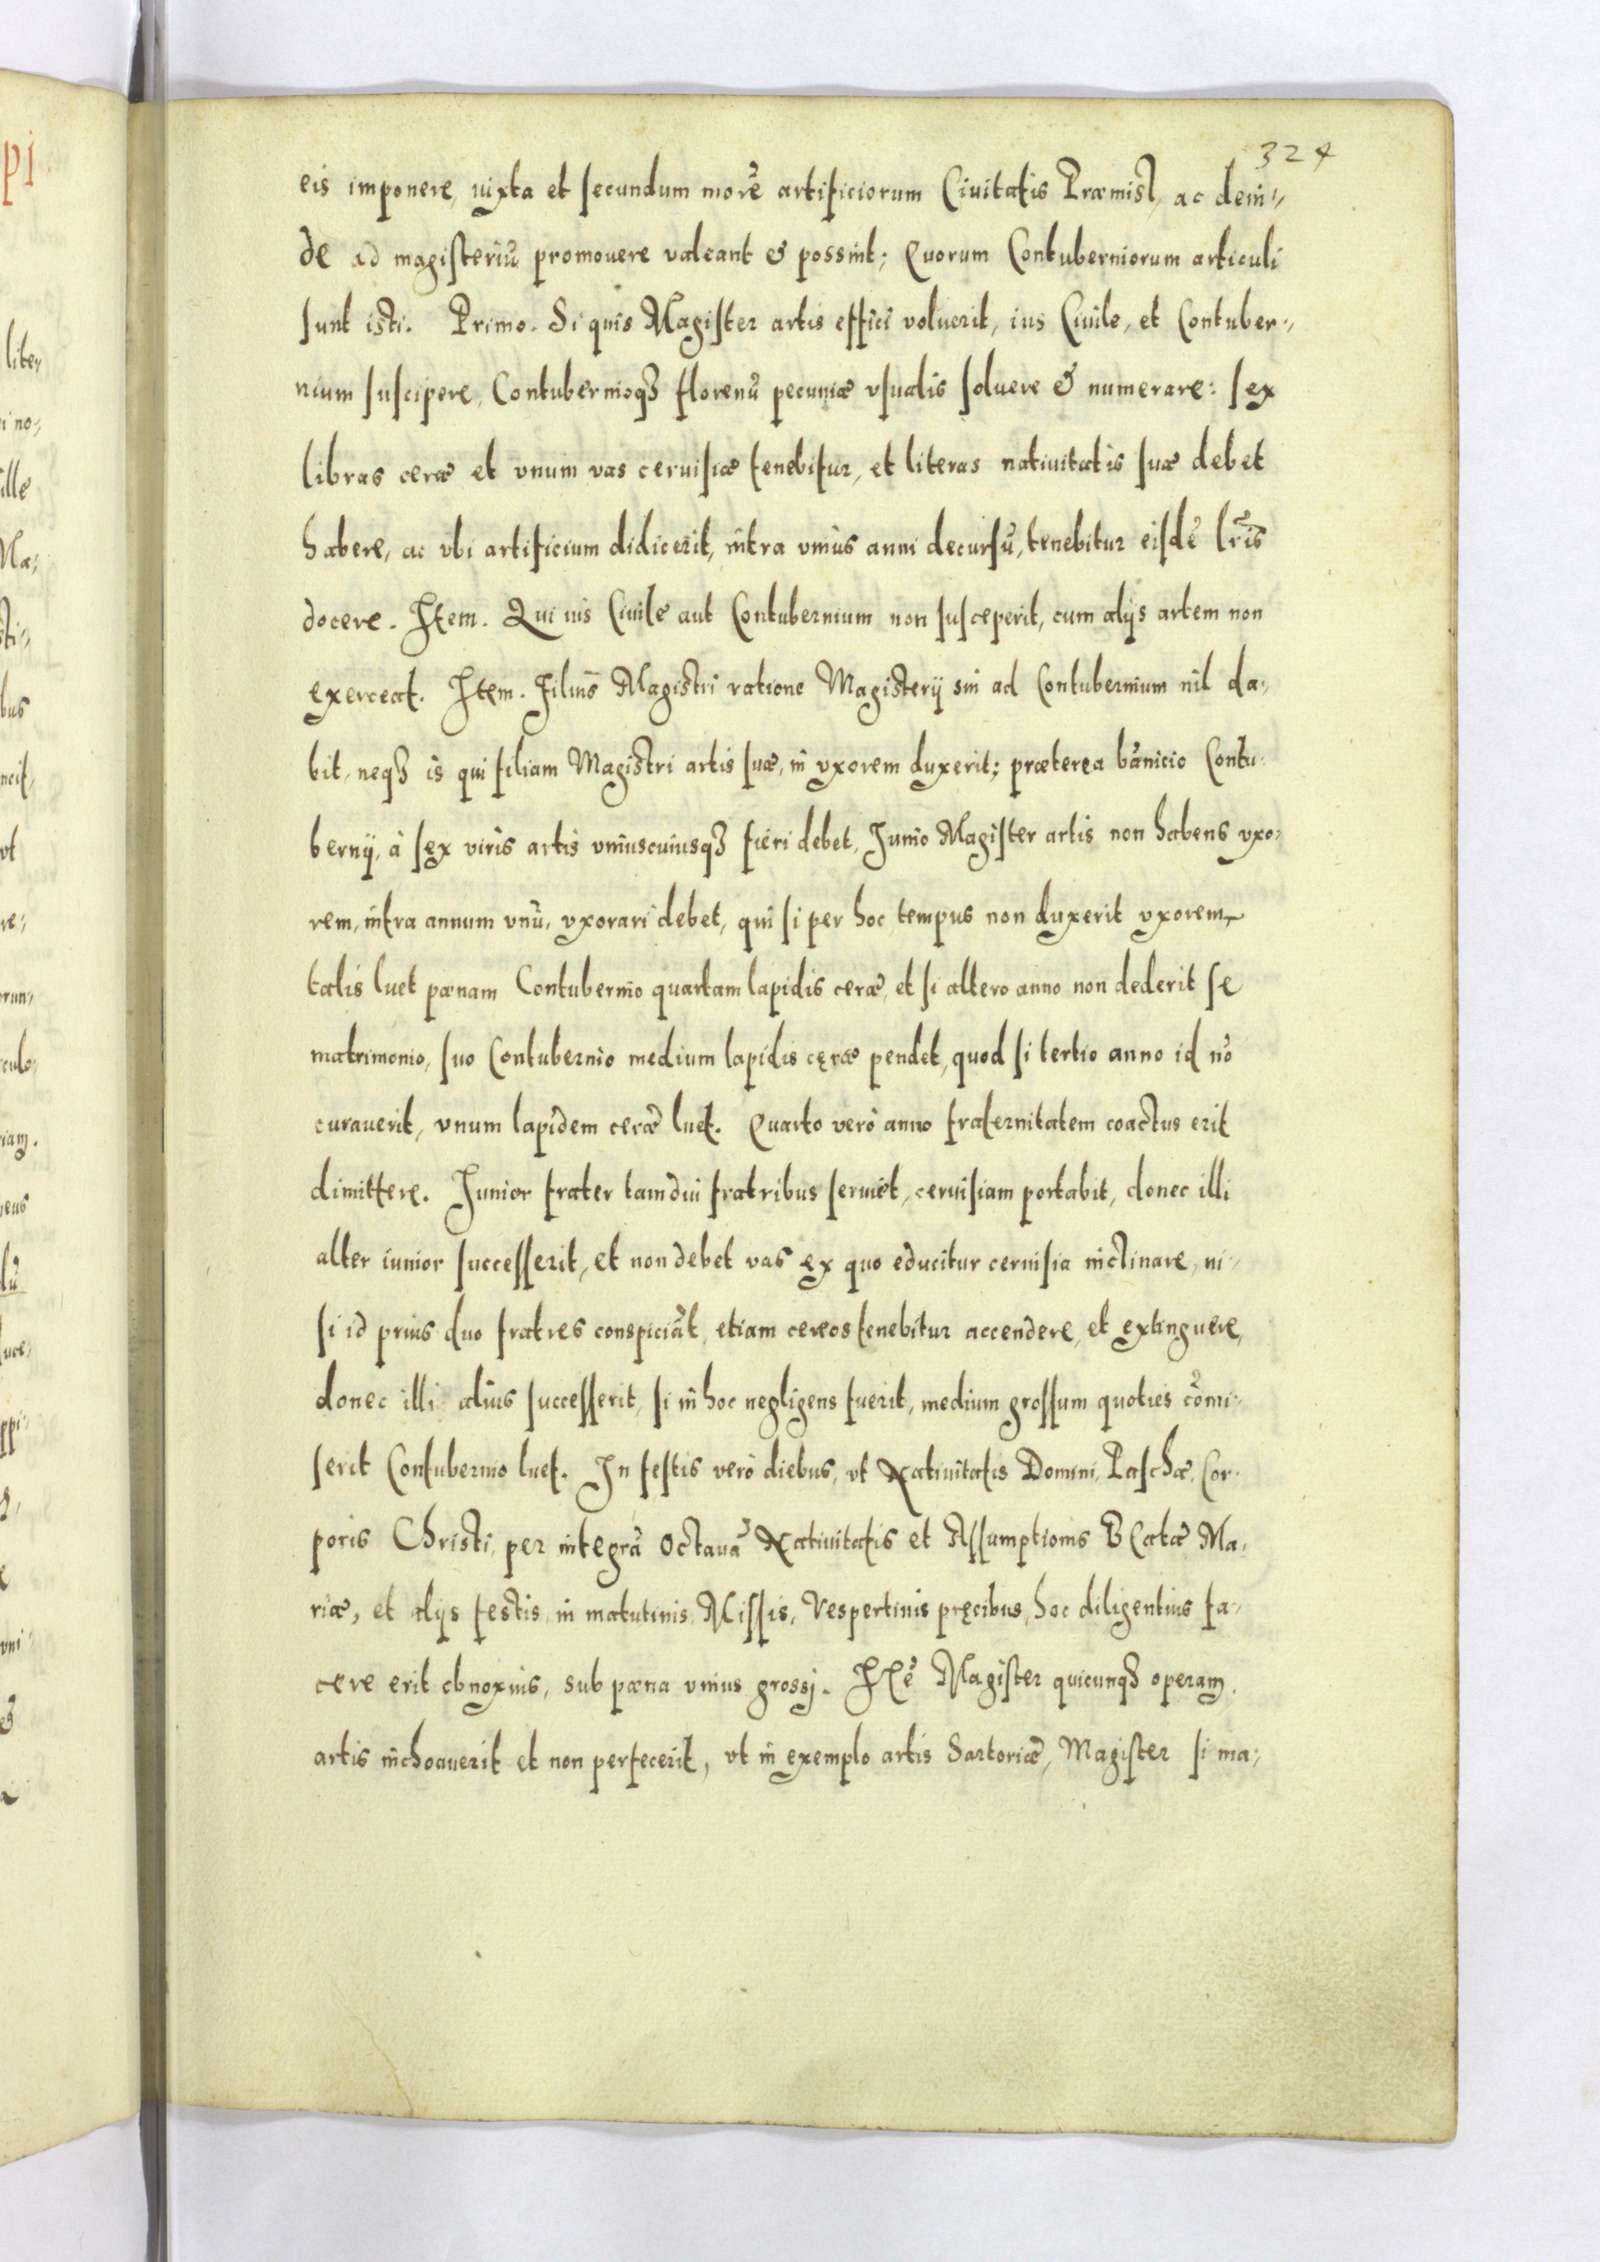 324
eis imponere, iuxta et secundum morē artificiorum Ciuitatis Præmisl, ac dein-
de ad magisteriū promouere valeant & possint; Quorum Contuberniorum articuli
sunt isti. Primo. Si quis Magister artis effici voluerit, ius Ciuile, et Contuber-
nium suscipere, Contubernioqȝ florenū pecuniæ vsualis soluere & numerare: sex
libras ceræ et vnum vas ceruisiæ tenebitur, et literas natiuitatis suæ debet
habere, ac vbi artificium didicerit, intra vnius anni decursū, tenebitur eisdē lr̄is
docere. Item. Qui ius Ciuile aut Contubernium non susceperit, cum alijs artem non
exerceat. Item. Filius Magistri ratione Magisterij sui ad Contubernium nil da-
bit, neqȝ is qui filiam Magistri artis suæ, in vxorem duxerit; præterea bānicio Contu-
bernij, à sex viris artis vniuscuiusqȝ fieri debet, Junio Magister artis non habens vxo-
rem, infra annum vnū, vxorari debet, qui si per hoc tempus non duxerit vxorem,
talis luet pœnam Contubernio quartam lapidis ceræ, et si altero anno non dederit se
matrimonio, suo Contubernio medium lapidis cęræ pendet, quod si tertio anno id nō
curauerit, vnum lapidem ceræ luet. Quarto verò anno fraternitatem coactus erit
dimittere. Junior frater tamdiu fratribus seruiet, ceruisiam portabit, donec illi
alter iunior successerit, et non debet vas ex quo educitur ceruisia inclinare, ni-
si id prius duo fratres conspiciāt, etiam cereos tenebitur accendere, et extinguere,
donec illi alius successerit, si in hoc negligens fuerit, medium grossum quoties cōmi-
serit Contubernio luet. In festis verò diebus, vt Natiuitatis Domini, Paschæ, Cor-
poris Christi, per integrā Octauā Natiuitatis et Assumptionis Beatæ Ma-
riæ, et alijs festis, in matutinis, Missis, Vespertinis pręcibus, hoc diligentius fa-
cere erit obnoxius, sub pœna vnius grossj. Itē Magister quicunqȝ operam
artis inchoauerit et non perfecerit, vt in exemplo artis Sartoriæ, Magister si ma-